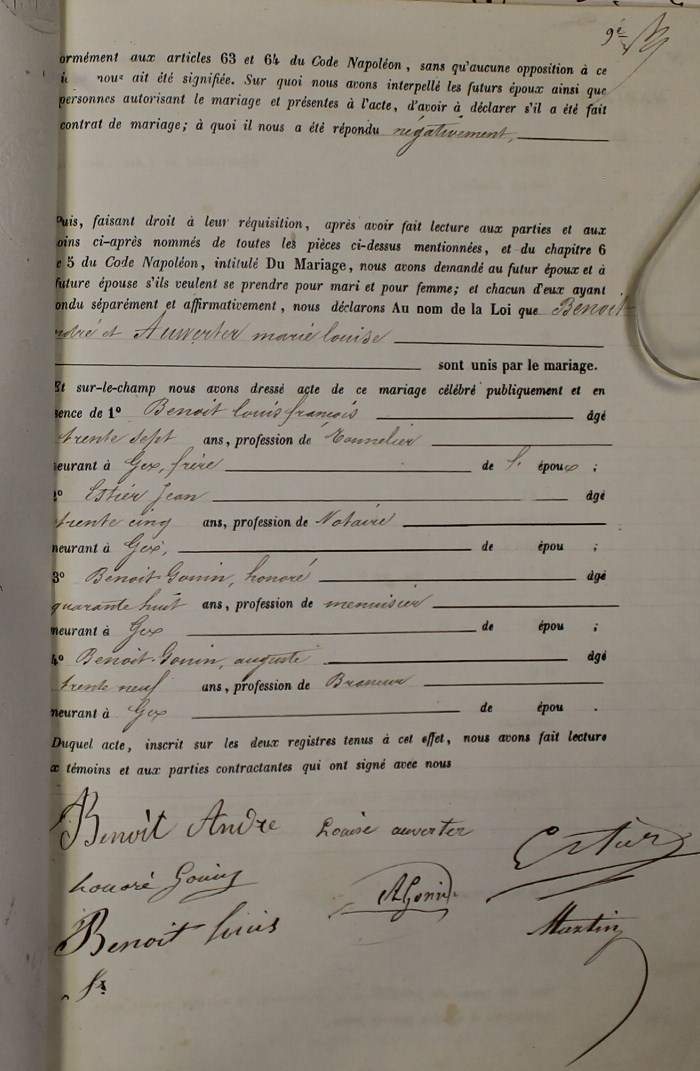 9e
ormément aux articles 63 et 64 du Code Napoléon, sans qu'aucune opposition à ce
nous ait été signifiée. Sur quoi nous avons interpellé les futurs époux ainsi que
personnes autorisant le mariage et présentes à l'acte, d'avoir à déclarer s'il a été fait
contrat de mariage; à quoi il nous a été répondu négativement,
Puis, faisant droit à leur réquisition, après avoir fait lecture aux parties et aux
oins ci-après nommés de toutes les pièces ci-dessus mentionnées, et du chapitre 6
e 5 du Code Napoléon, intitulé Du Mariage, nous avons demandé au futur époux et à
future épouse s'ils veulent se prendre pour mari et pour femme; et chacun d'eux ayant
ondu séparément et affirmativement, nous déclarons Au nom de la Loi que Benoit
ndré et Auverter marie louise
sont unis par le mariage.
Et sur-le-champ nous avons dressé acte de ce mariage célébré publiquement et en
sence de 1o Benoit louis françois âgé
trente sept ans, profession de Tonnelier
meurant à Gex, frère de l' époux ;
2o Estier Jean âgé
trente cinq ans, profession de Notaire
meurant à Gex, de épou ;
3o Benoit-Gonin, honoré âgé
quarante huit ans, profession de menuisier
meurant à Gex de épou ;
4o Benoit-Gonin, auguste âgé
trente neuf ans, profession de
meurant à Gex de épou .
Duquel acte, inscrit sur les deux registres tenus à cet effet, nous avons fait lecture
x témoins et aux parties contractantes qui ont signé avec nous
Benoit Andre Louise auverter Estier
honoré Gonin AGonin
Benoit louis Martin